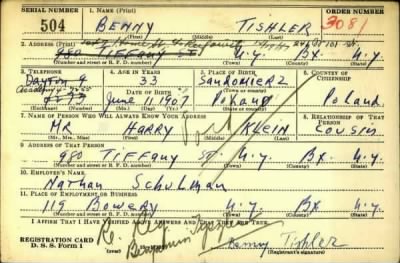 SERIAL NUMBER 1. NAME (Print) ORDER NUMBER
504 BENNY TISHLER 3081
(First) (Middle) (Last)
2. ADDRESS (Print)
980 TIFFANY ST N.Y. BX. N.Y.
(Number and street or R. F. D. number) (Town) (County) (State)
3. TELEPHONE 4. AGE IN YEARS 5. PLACE OF BIRTH 6. COUNTRY OF CITIZENSHIP
DAYTON 9 33 SANDOMIERZ
DATE OF BIRTH (Town or county)
JUNE 11, 1907 POLAND Poland
(Exchange) (Number) (Mo.) (Day) (Yr.) (State or country)
7. NAME OF PERSON WHO WILL ALWAYS KNOW YOUR ADDRESS 8. RELATIONSHIP OF THAT PERSON
MR HARRY KLEIN COUSIN
(Mr., Mrs., Miss) (First) (Middle) (Last)
9. ADDRESS OF THAT PERSON
980 TIFFANY ST. N.Y. BX. N.Y.
(Number and street or R. F. D. number) (Town) (County) (State)
10. EMPLOYER'S NAME
Nathan Schulman
11. PLACE OF EMPLOYMENT OR BUSINESS
119 BOWERY N.Y. BX N.Y.
(Number and street or R. F. D. number) (Town) (County) (State)
I AFFIRM THAT I HAVE VERIFIED ABOVE ANSWERS AND THAT THEY ARE TRUE.
REGISTRATION CARD
D. S. S. Form 1 Benjamin Benny Tishler
(Registrant's signature)